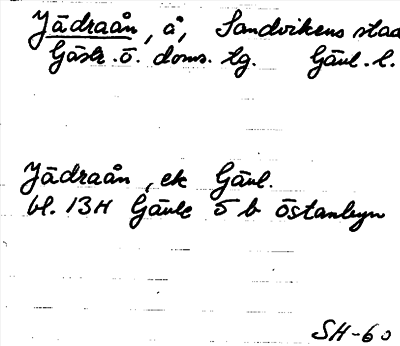 Jädraån, å, Sandvikens stad
Gästr. ö. doms. tg. Gävl. l.
Jädraån, ek Gävl.
bl. 13H Gävle 5 b Östanbyn
SH-60